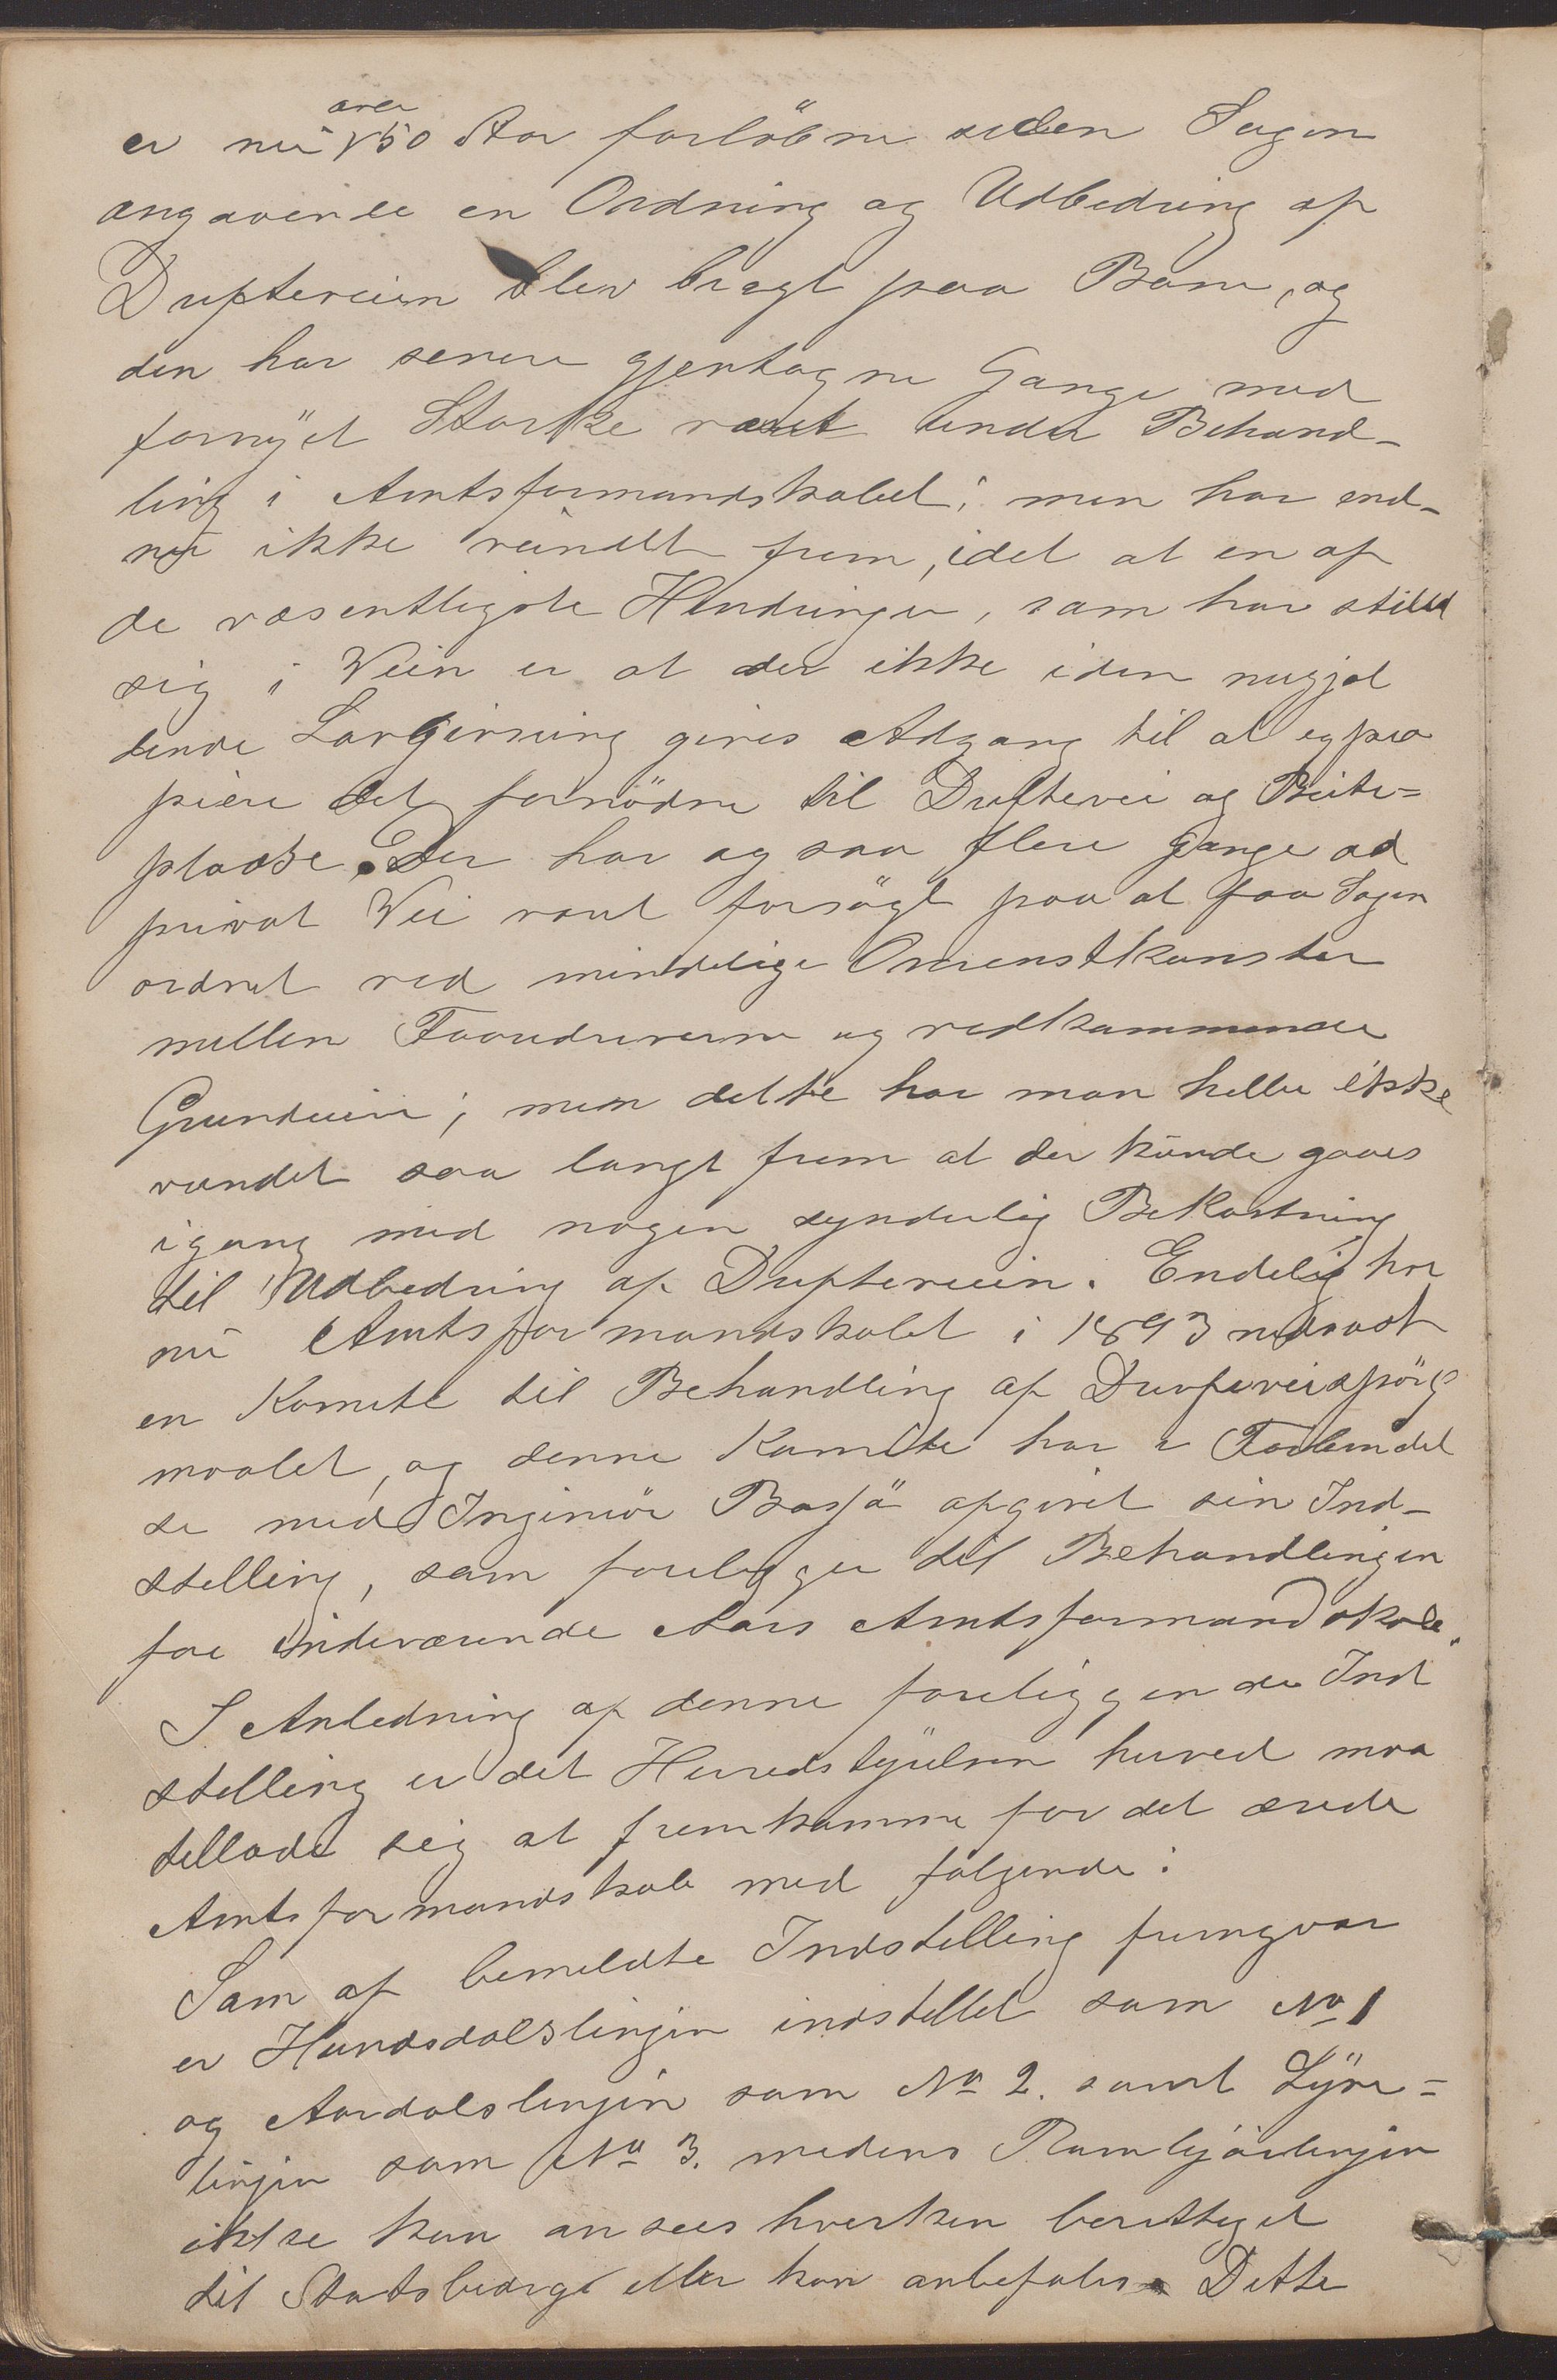 er nu over 50 Aar forløbne siden Sagen
angaaende en Ordning og Udbedring af
Drifteveien blev bragt paa Bane, og
den har senere gjentagne Gange med
fornÿet Starke været under Behand-
ling i Amtsformandskabet; men har end-
nu ikke vundet frem, idet at en af
de væsentligste Hindringer, som har stillet
sig i Veien er at der ikke i den nugjæl
dende Lovgivning gives Adgang til at expro
piere det fornödne til Driftevei og Beite=
pladse. Der har og saa flere Gange ad
privat Vei været forsögt paa at faa Sagen
ordnet ved mindelige Overenstkomster
mellen Faaredriverne og vedkommende
Grundeiere; men dette har man heller ikke
vundet saa langt frem at der kunde gaaes
igang med nogen synderlig Bekostning
til Udbedring af Drifteveien. Endelig har
nu Amtsformandskabet i 1893 nedsadt
en Komite til Behandling af Drifteveispörgs
maalet, og denne Komite har i Forbindel
se med Ingeniör Bassö afgivet sin Ind-
stilling, som foreligger til Behandlingen
for indeværende Aars Amtsformandskab.
I Anledning af denne foreliggende Ind
stilling er det Herredstÿrelsen herved maa
tillade sig at fremkomme for det ærede
Amtsformandskab med følgende:
Som af bemeldte Indstilling fremgaar
er Hundsdalslinjen indstillet som No 1
og Aardalslinjen som No 2. samt Lÿse=
linjen som No 3. medens Ramlÿarlinjen
ikke kan ansees hverken berettiget
til Statsbidrag eller kan anbefales. Dette